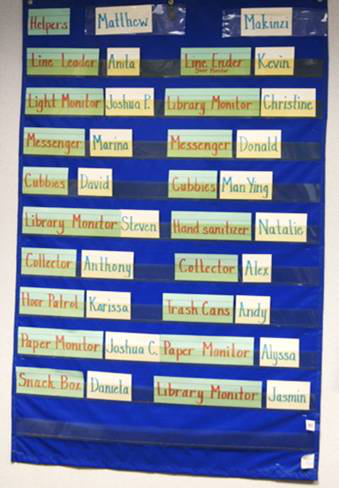 Helpers Matthew Makinzi
Line Leader Anita Line Ender Kevin
Door Monitor
Light Monitor Joshua P. Library Monitor Christine
Messenger Marina Messenger Donald
Cubbies David Cubbies Man Ying
Library Monitor Steven Hand sanitizer Natalie
Collector Anthony Collector Alex
Floor Patrol Karissa Trash Cans Andy
Paper Monitor Joshua C. Paper Monitor Alyssa
Snack Box Daniela Library Monitor Jasmin